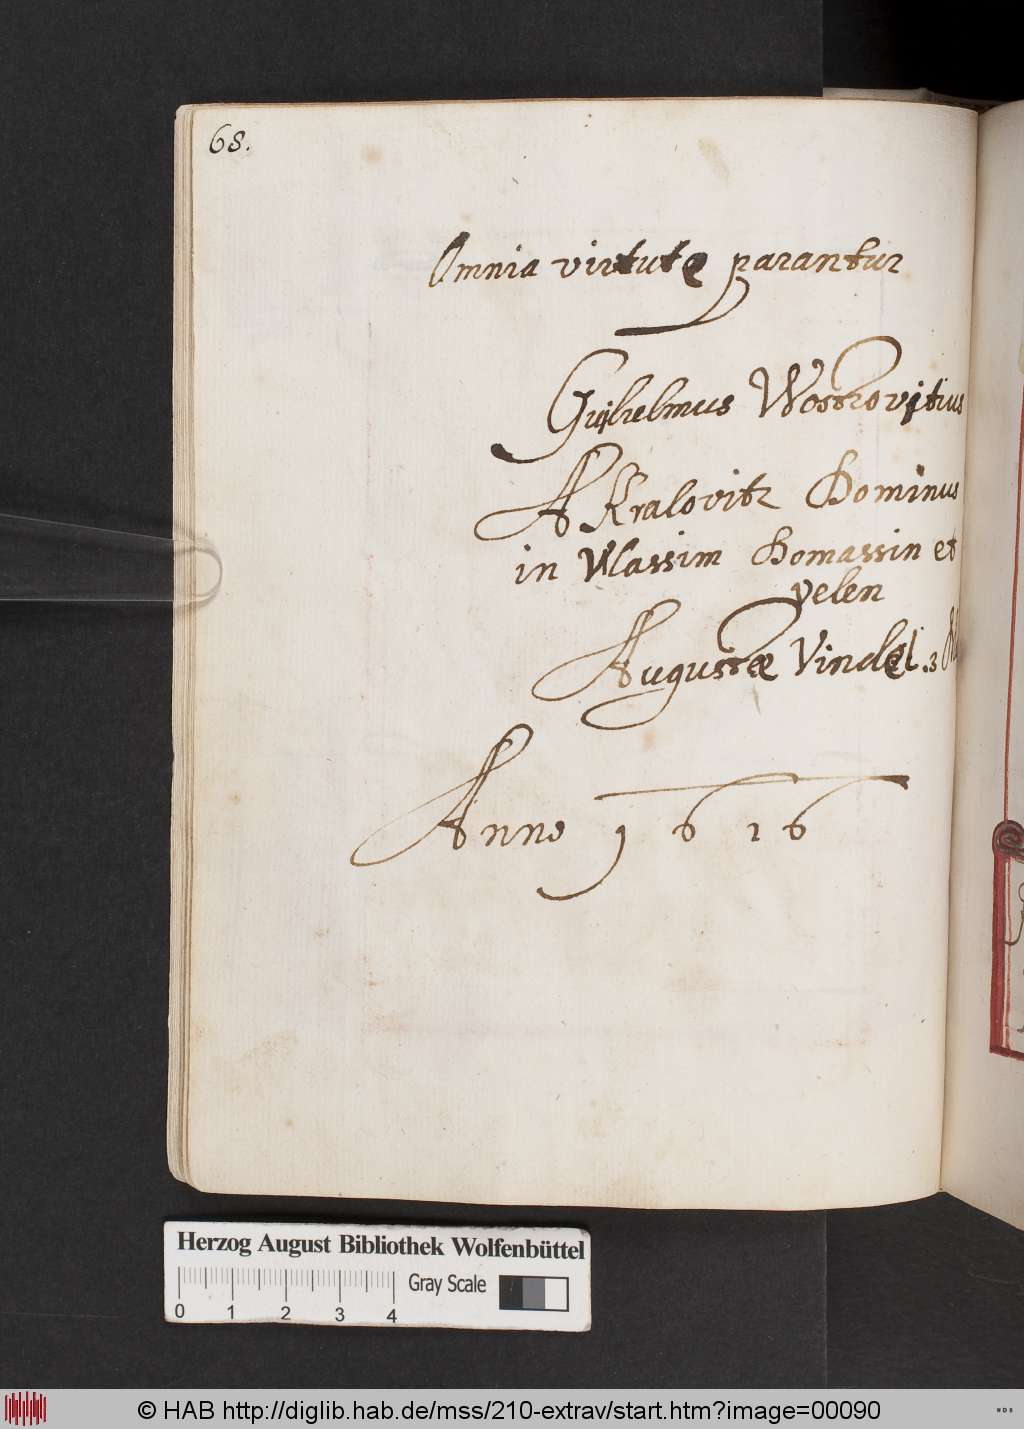 68.
Omnia virtute parantur
Guilhelmus Wostrovitius
A Kralovitz Dominus
in Wlassim Domassin et
velen
Augustæ Vindel. 3
Anno 1616
Herzog August Bibliothek Wolfenbüttel
Gray Scale
0 1 2 3 4
© HAB http://diglib.hab.de/mss/210-extrav/start.htm?image=00090
HAB